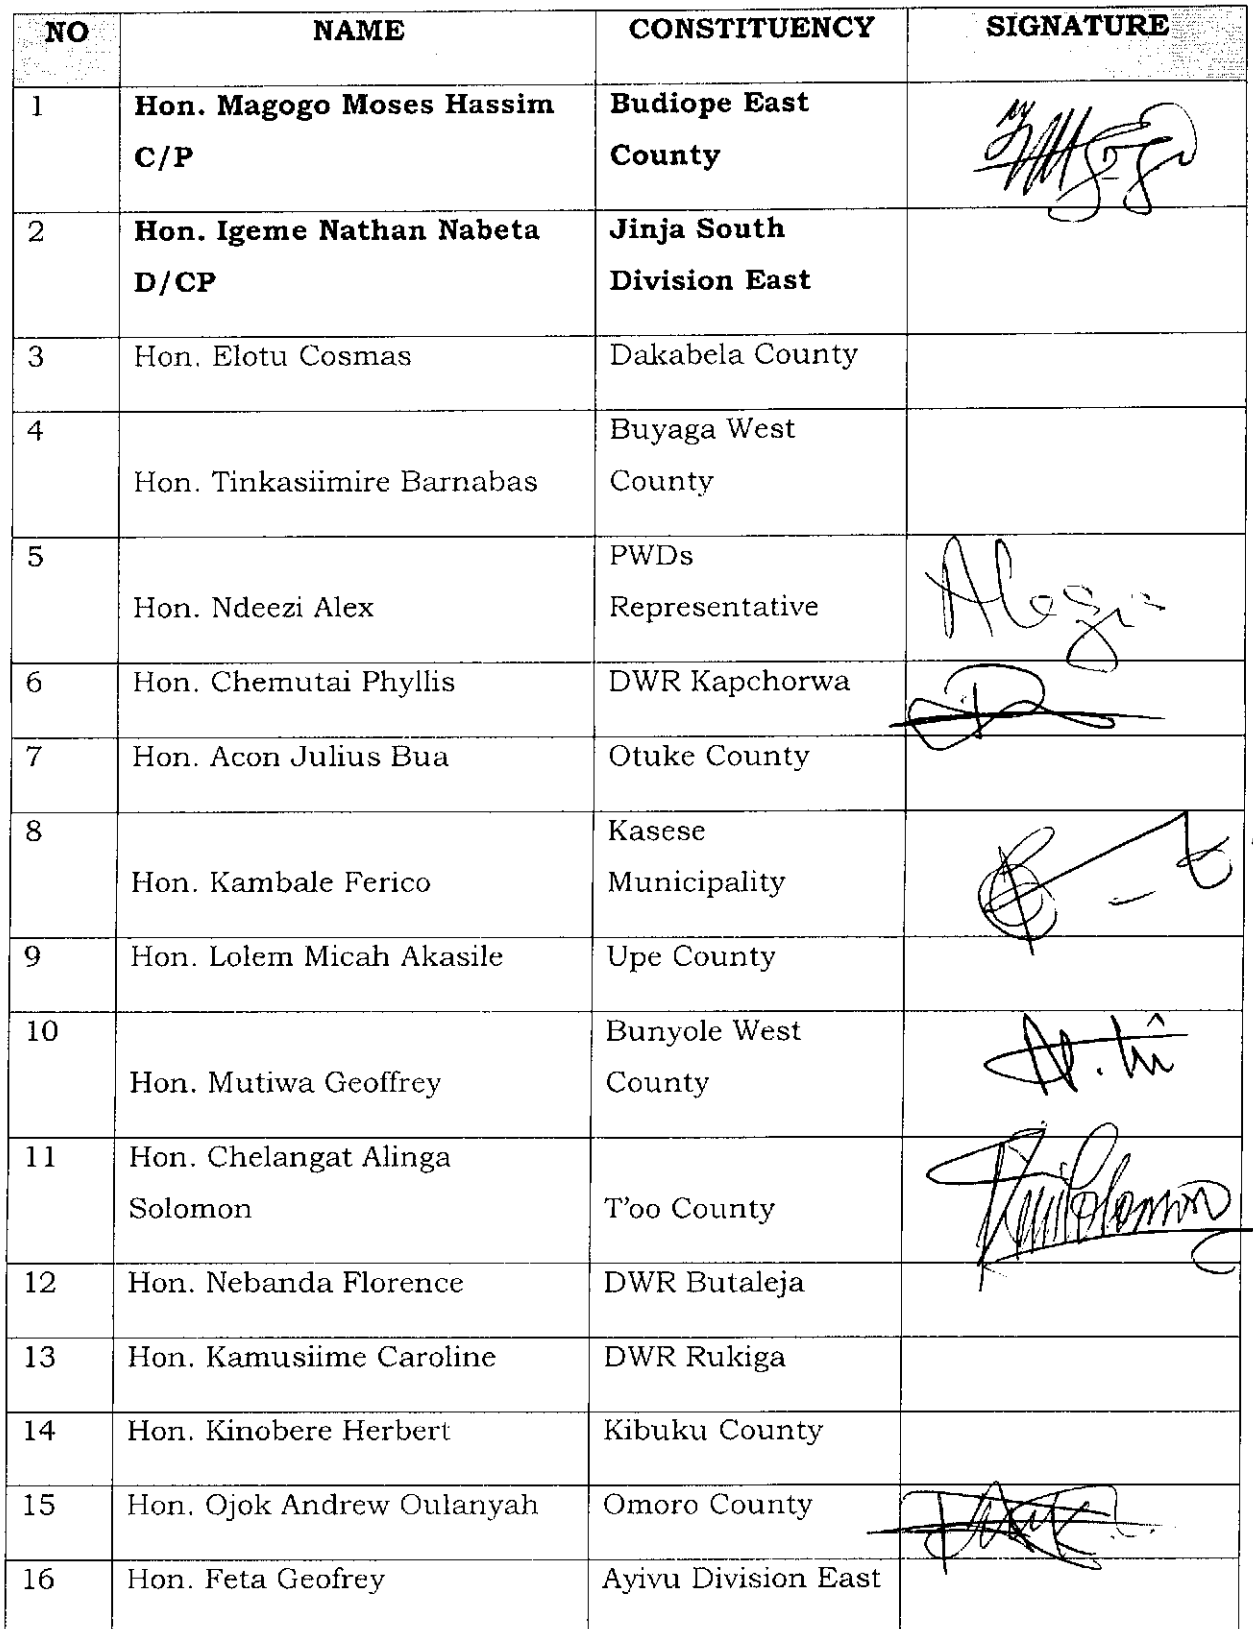 NO NAME CONSTITUENCY SIGNATURE
1 Hon. Magogo Moses Hassim Budiope East
C/P County
2 Hon. Igeme Nathan Nabeta Jinja South
D/CP Division East
3 Hon. Elotu Cosmas Dakabela County
4 Buyaga West
Hon. Tinkasiimire Barnabas County
5 PWDs
Hon. Ndeezi Alex Representative
6 Hon. Chemutai Phyllis DWR Kapchorwa
7 Hon. Acon Julius Bua Otuke County
8 Kasese
Hon. Kambale Ferico Municipality
9 Hon. Lolem Micah Akasile Upe County
10 Bunyole West
Hon. Mutiwa Geoffrey County
11 Hon. Chelangat Alinga
Solomon T'oo County
12 Hon. Nebanda Florence DWR Butaleja
13 Hon. Kamusiime Caroline DWR Rukiga
14 Hon. Kinobere Herbert Kibuku County
15 Hon. Ojok Andrew Oulanyah Omoro County
16 Hon. Feta Geofrey Ayivu Division East